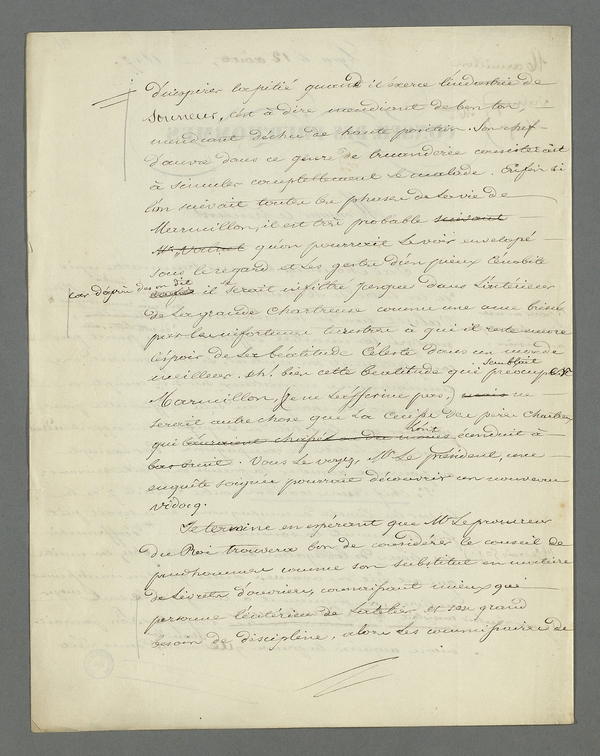 d'inspirer la pitié quand il éxerce l'industrie de
Sonneur, c'est à dire mendiant de bon ton,
mendiant déchu de haute position. Son chef-
d'œuvre dans ce genre de truanderie consisterait
à simuler complettement le malade. Enfin si
l'on suivait toutes les phases de la vie de
Marmillon, il est très probable suivant
Mr qu'on pourrait le voir envelopé
sous le regard et les gestes d'un pieux Cénobite
car d'après des on dit
il se serait infiltré jusques dans l'intérieur
de la grande Chartreuse comme une ame brisée
par les infortunes terrestres à qui il reste encore
l'espoir de la béatitude Céleste dans un monde
semblait
meilleur. Eh! bien cette beatitude qui préoccuper
Marmillon, (je ne l'afferme pas,) mais ne
serait autre chose que la des peres Chartreux
qui l'auraient l'ont éconduit à
bas bruit. Vous le voyez, Mr Le président, une
enquête soignée pourrait découvrir un nouveau
Vidocq.
Je termine en espérant que Mr Le procureur
du Roi trouvera bon de considérer le conseil de
prudhommes comme son substitut en matière
de Livrets d'ouvriers, connaissant mieux que
personne l'intérieur de l'atelier et son grand
besoin de discipline, alors les commissaires de